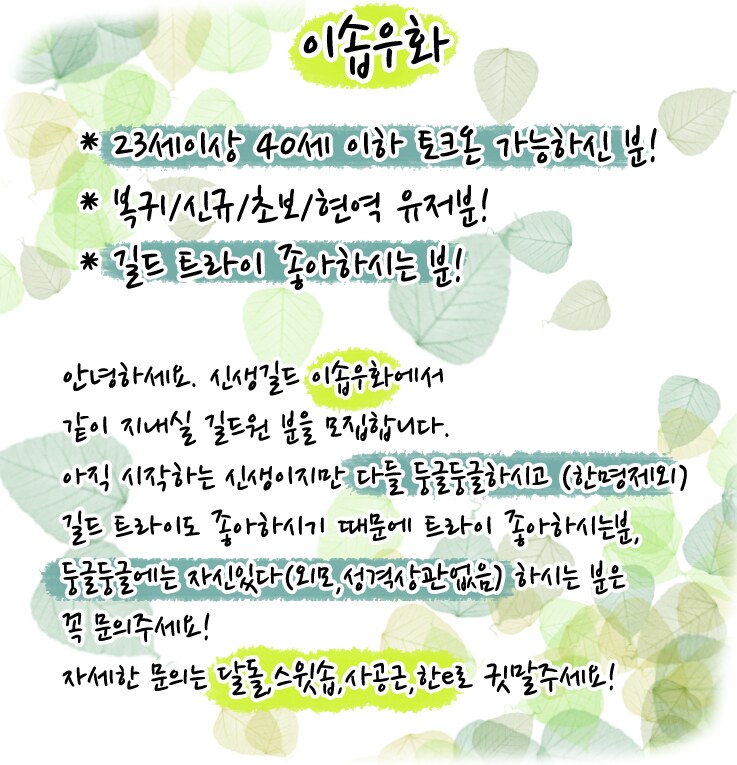 이솝우화
* 23세이상 40세 이하 토크온 가능하신 분!
* 복귀/신규/초보/현역 유저분!
* 길드 트라이 좋아하시는 분!
안녕하세요. 신생길드 이솝우화에서
같이 지내실 길드원 분을 모집합니다.
아직 시작하는 신생이지만 다들 둥글둥글하시고 (한명제외)
길드 트라이도 좋아하시기 때문에 트라이 좋아하시는분,
둥글둥글에는 자신있다(외모,성격상관없음) 하시는 분은
꼭 문의주세요!
자세한 문의는 달돌,스윗솝,사공근,한e로 귓말주세요!